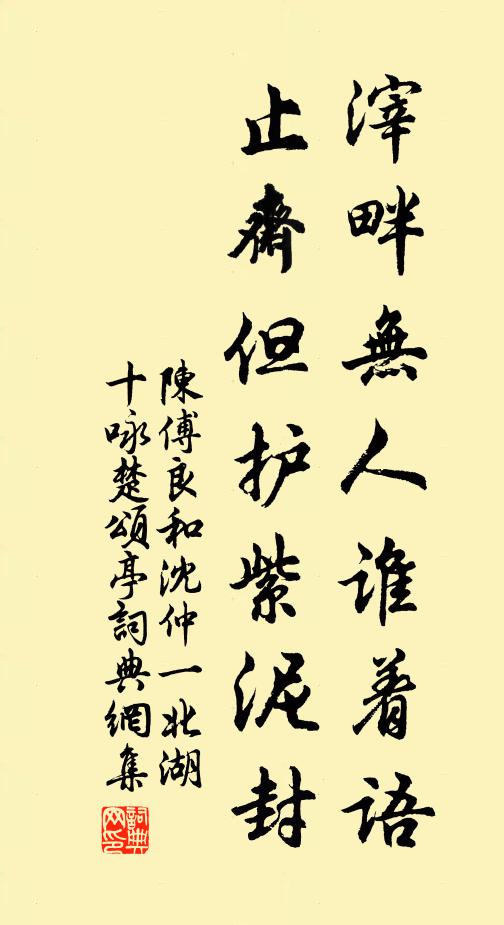 滓畔無人谁着语
止齋但护紫泥封
陳傅良和沈仲一北湖
十咏楚頌亭詞典網集
詞典网印